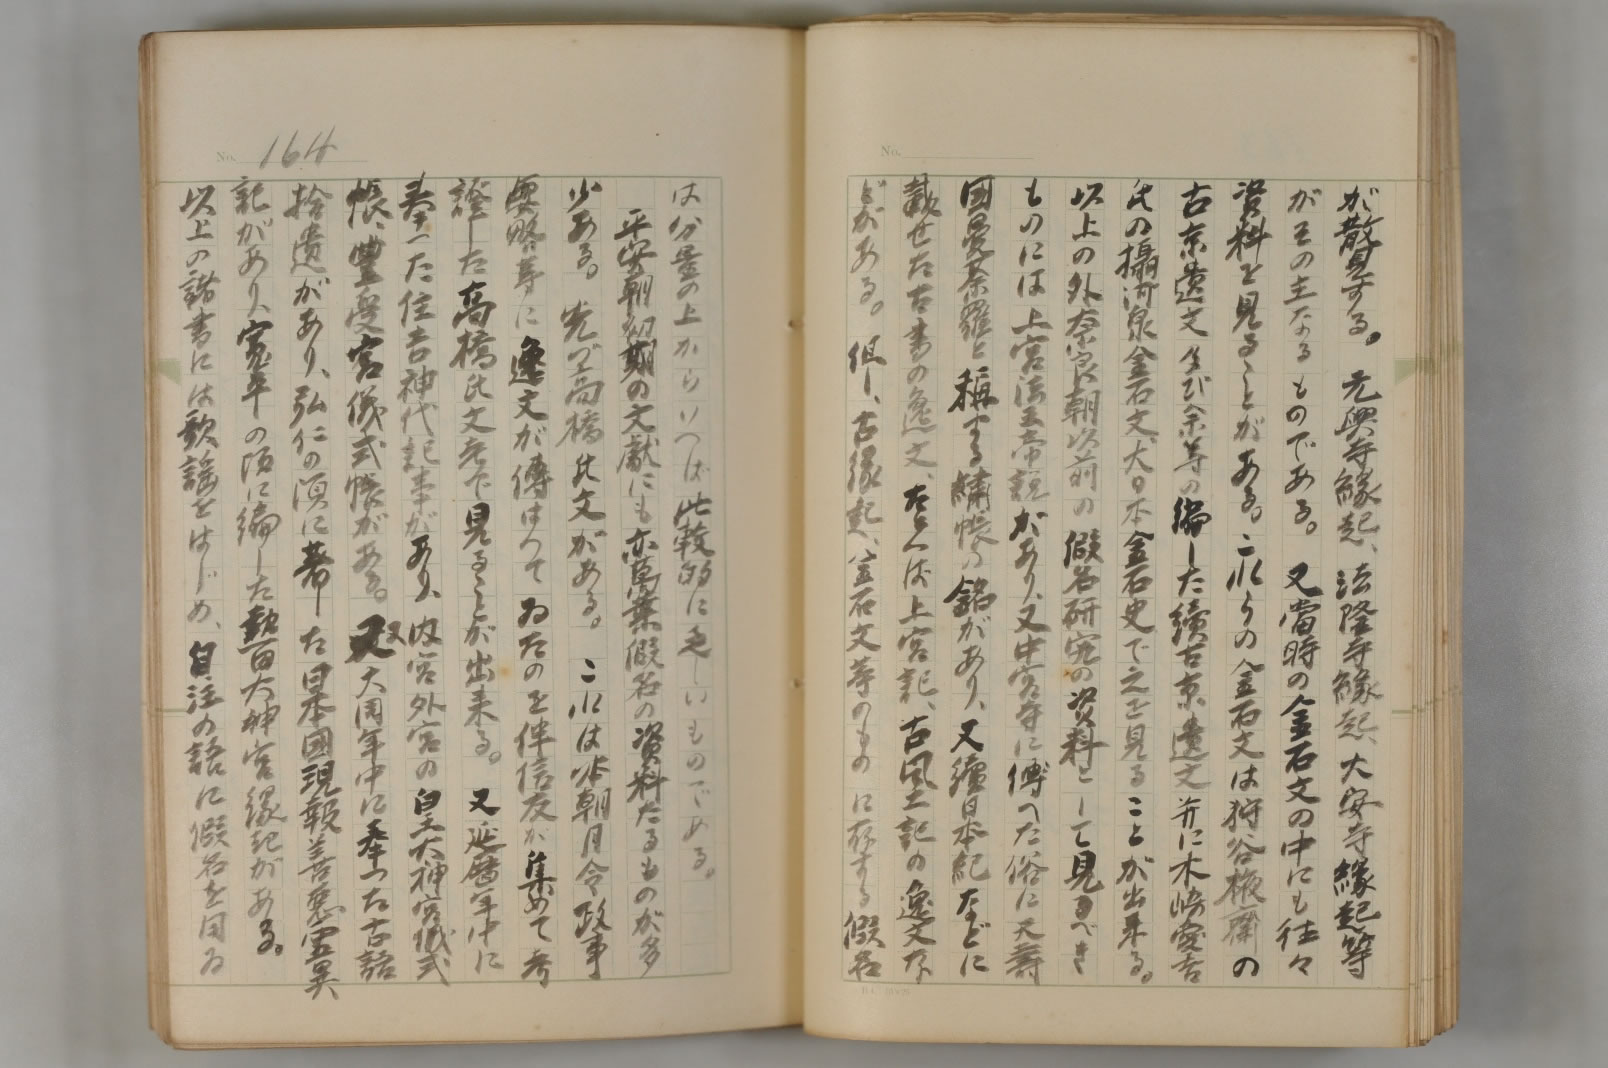 が散見する。元興寺縁起、法隆寺縁起、大安寺縁起等
がその主なるものである。又當時の金石文の中にも往々
資料を見ることがある。これらの金石文は狩谷棭齋の
古京遺文及び余等の編した續古京遺文并に木崎愛吉
氏の攝河泉金石文、大日本金石史で之を見ることが出来る。
以上の外奈良朝以前の假名研究の資料として見るべき
ものには上宮法王帝説があり、又中宮寺に傳へた俗に天壽
國曼荼羅と稱する繡帳の銘があり、又續日本紀などに
載せた古書の逸文、たとへば上宮記、古風土記の逸文な
どがある。但し、古縁起、金石文等のものに存する假名
No. 164
は分量の上からいへば比較的に乏しいものである。
平安朝初期の文獻にも亦萬葉假名の資料たるものが多
少ある。先づ高橋氏文がある。これは本朝月令、政事
要略等に逸文が傳はつてゐたのを伴信友が集めて考
證した高橋氏文考で見ることが出来る。又延暦年中に
奉つた住吉神代記事があり、内宮外宮の皇大神宮儀式
帳、豊受宮儀式帳がある。又大同年中に奉つた古語
拾遺があり、弘仁の頃に著した日本國現報善惡靈異
記があり、寛平の頃に編した熱田大神宮縁起がある。
以上の諸書には歌謡をはじめ、自注の語に假名を用ゐ
No.